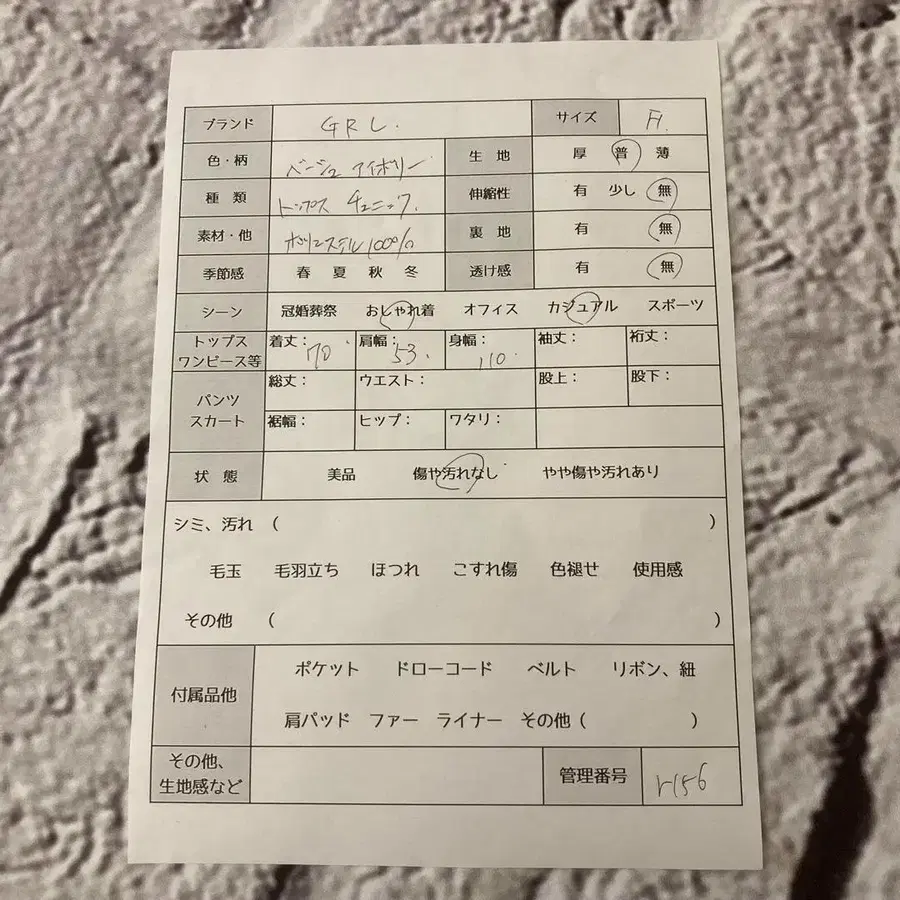 ブランド GRL. サイズ F.
色・柄 ベージュ アイボリー 生地 厚 普 薄
種類 トップス チュニック. 伸縮性 有 少し 無
素材・他 ポリエステル100% 裏地 有 無
季節感 春 夏 秋 冬 透け感 有 無
シーン 冠婚葬祭 おしゃれ着 オフィス カジュアル スポーツ
トップス ワンピース等 着丈: 70 肩幅: 53. 身幅: 110 袖丈: 裄丈:
パンツ スカート 総丈: ウエスト: 股上: 股下:
裾幅: ヒップ: ワタリ:
状態 美品 傷や汚れなし やや傷や汚れあり
シミ、汚れ ( )
毛玉 毛羽立ち ほつれ こすれ傷 色褪せ 使用感
その他 ( )
付属品他 ポケット ドローコード ベルト リボン、紐
肩パッド ファー ライナー その他 ( )
その他、
生地感など 管理番号 r156